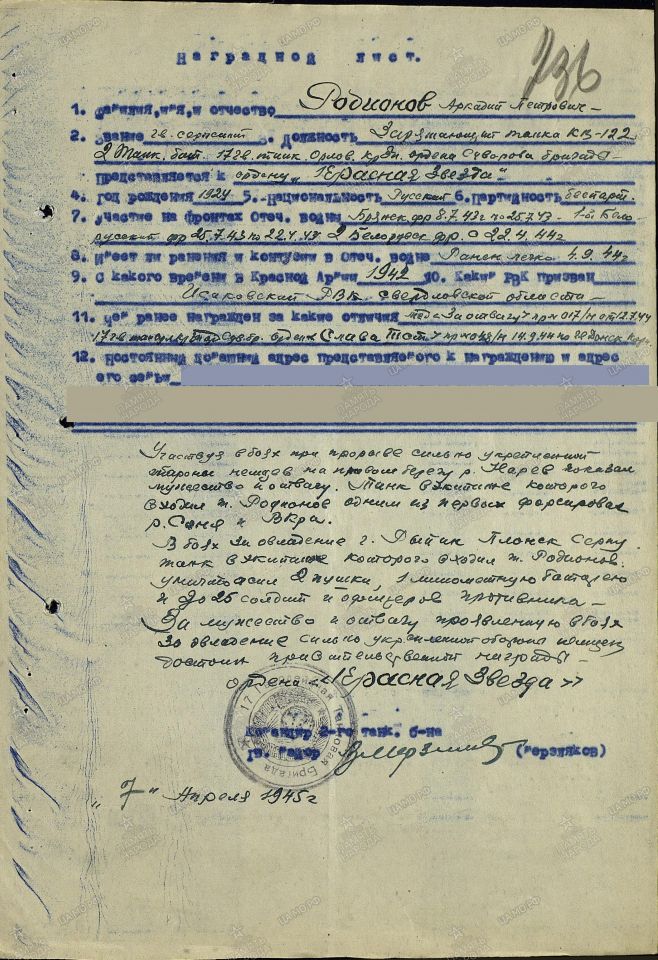 736
Наградной лист.
1. Фамилия, имя, и отчество Родионов Аркадий Петрович-
2. Звание гв. сержант 3. Должность Заряжающий танка КВ-122
2 Танк. бат. 17 гв. танк. Орлов. кр.Зн. ордена Суворова бригады-
представляется к ордену „Красная Звезда"
4. Год рождения 1924 5. Национальность Русский 6. Партийность беспарт.
7. Участие на фронтах Отеч. войны Брянск фр 8.7.43г по 25.7.43 - 1й Бело
русский фр 25.7.43 по 22.4.43 2 Белорусск фр. с 22.4.44г
8. Имеет ли ранения и контузии в Отеч. войне Ранен легко 4.9.44г
9. С какого времени в Красной Армии 1942 10. Каким РВК призван
РВК Свердловской области-
11. Чем ранее награжден за какие отличия Медаль За отвагу пр № 017/н от 12.7.44
17 гв. орден Слава IIIст пр № 048/н 14.9.44
12. Постоянный домашний адрес представляемого к награждению и адрес
его семьи
Участвуя в боях при прорыве сильно укрепленной
обороны немцев на правом берегу р. Нарев показал
мужество и отвагу. Танк в экипаже которого
входил т. Родионов одним из первых форсировал
р. Сона и Вкра.
В боях за овладение г. Плонск Серпц
танк в экипаже которого входил т. Родионов.
уничтожил 2 пушки, 1 минометную батарею
и до 25 солдат и офицеров противника-
За мужество и отвагу проявленную в боях
За овладение сильно укрепленной обороны немцев
достоин правительственной награды-
ордена «Красная Звезда»
Командир 2-го танк. б-на
Гв. майор (Мерзляков)
17 Гвардейская Танковая Бригада
„7" Апреля 1945г
ПАМЯТЬ НАРОДА
ЦАМО.РФ